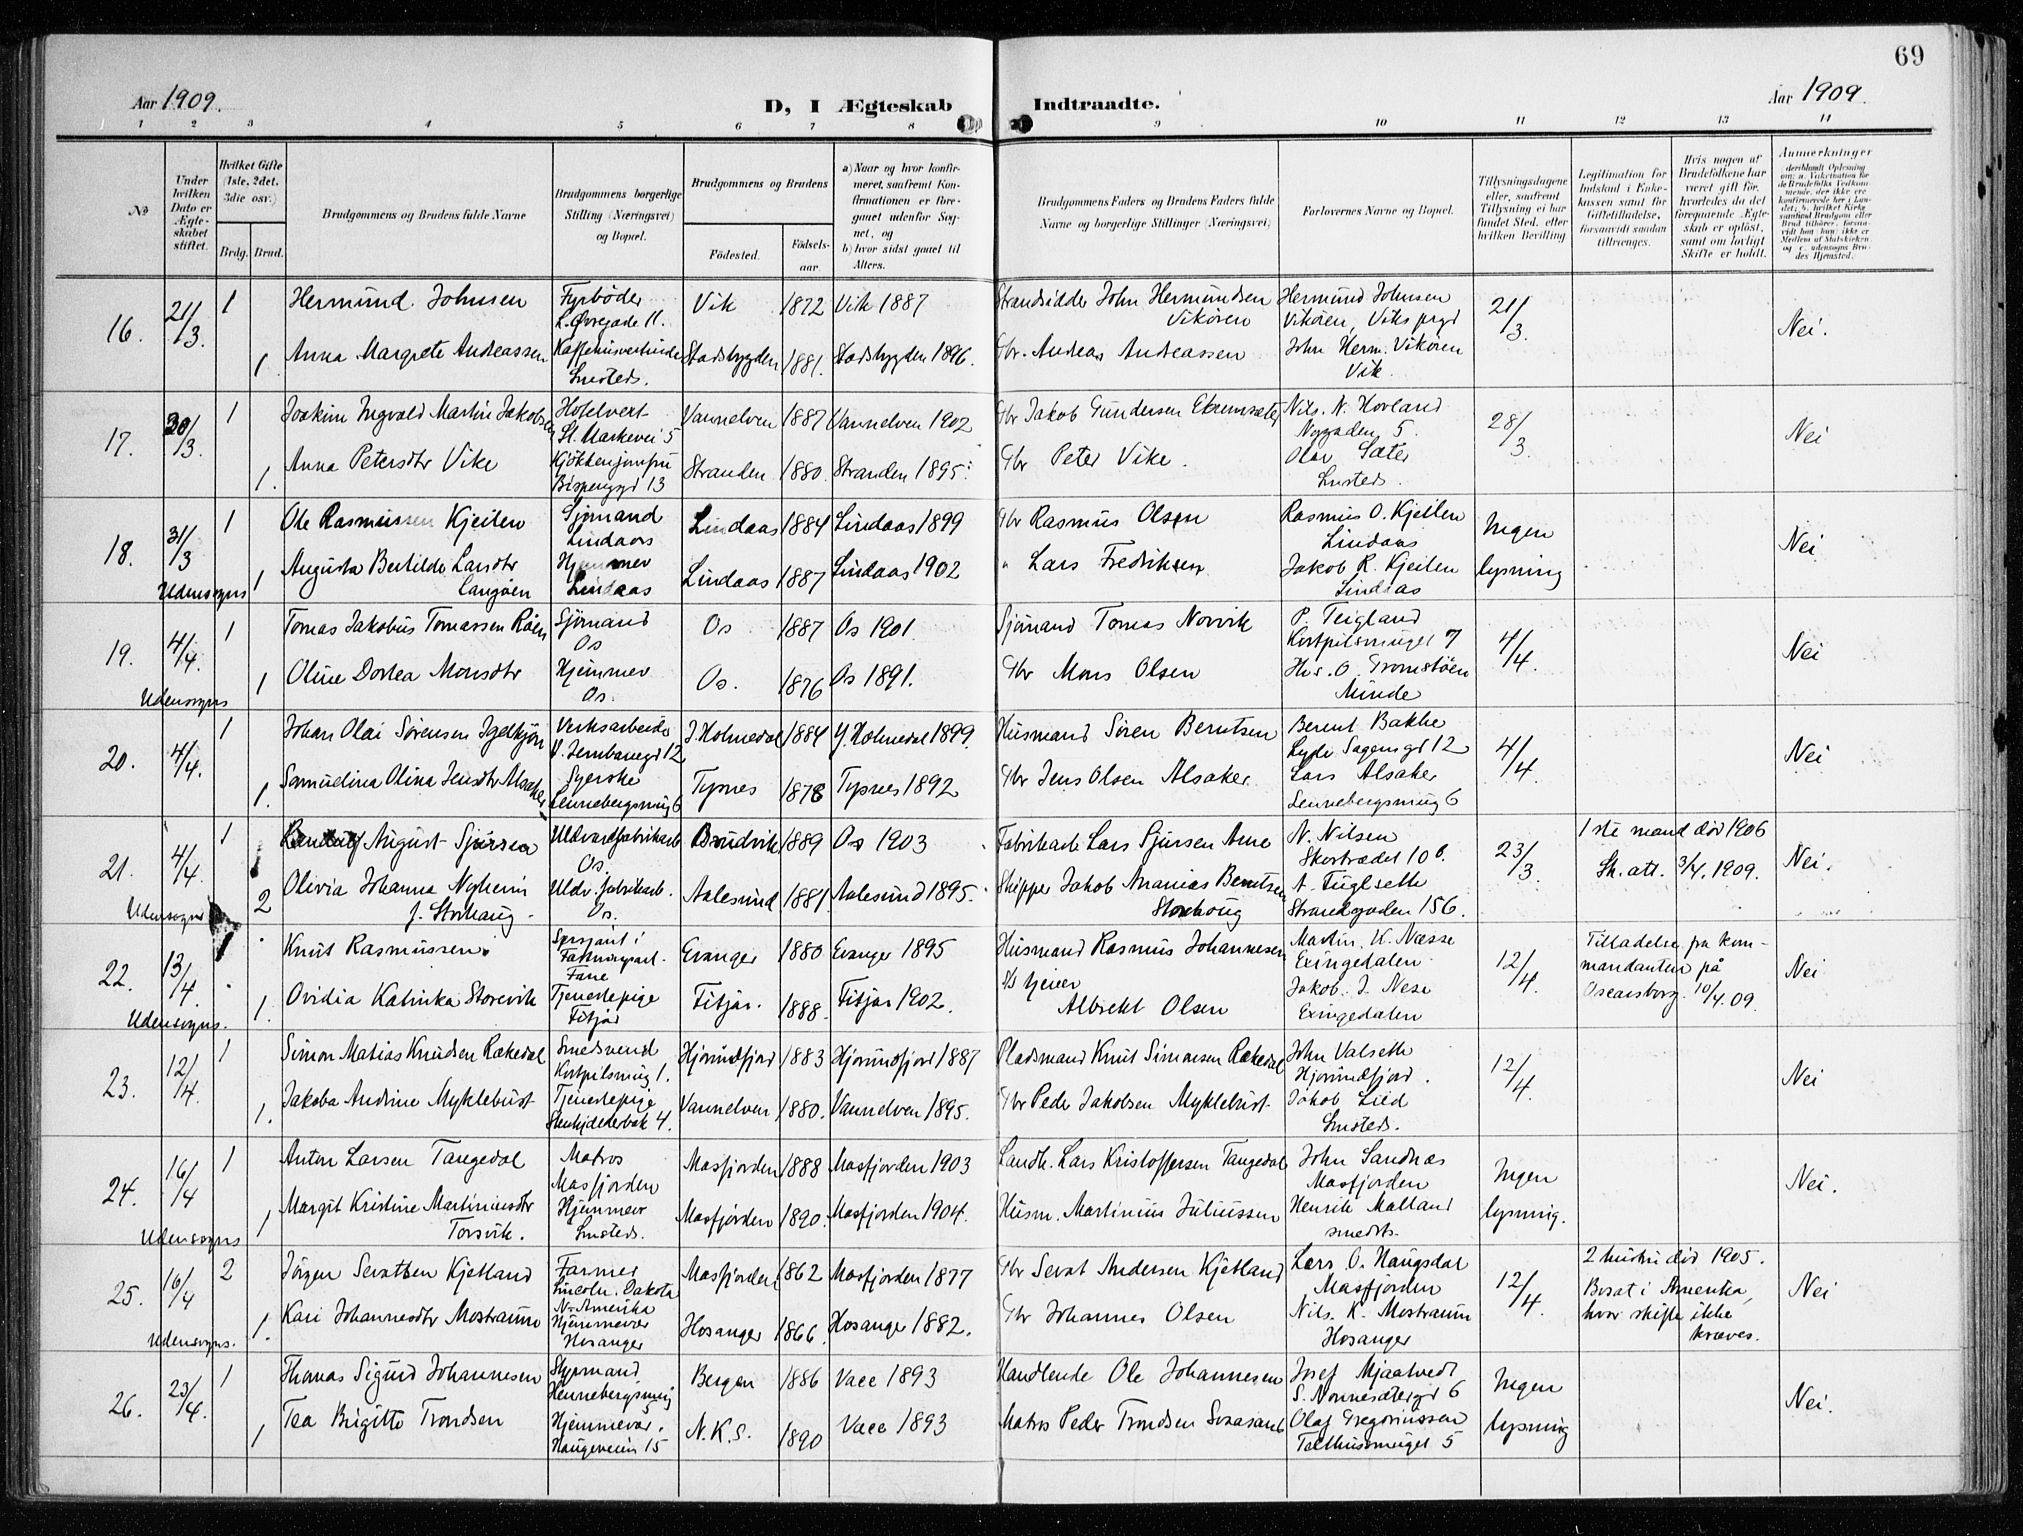 69
Aar 1909.
D, I Ægteskab Indtraadte.
Aar 1909.
1 2 3 4 5 6 7 8 9 10 11 12 13 14
No
Under hvilken Dato er Ægteskabet stiftet.
Hvilket Gifte (1ste, 2det, 3die osv.)
Brdg. Brud.
Brudgommens og Brudens fulde Navne
Brudgommens borgerlige Stilling (Næringsvei) og Bopæl.
Brudgommens og Brudens
Fødested.
Fødselsaar.
a) Naar og hvor konfirmeret, saafremt Konfirmationen er foregaaet udenfor Sognet, og
b) hvor sidst gaaet til Alters.
Brudgommens Faders og Brudens Faders fulde Navne og borgerlige Stillinger (Næringsvei)
Forlovernes Navne og Bopæl.
Tillysningsdagene eller, saafremt Tillysning ei har fundet Sted, efter hvilken Bevilling
Legitimation for Indskud i Enkekassen samt for Giftetilladelse, forsaavidt saadan tiltrænges.
Hvis nogen af Brudefolkene har været gift før, hvorledes da det foregaaende Ægteskab er opløst, samt om lovligt Skifte er holdt.
Anmærkninger
16. 21/3. 1 Hermund Johnsen Fyrbøder L. Øvregade 11. Vik 1872 Vik 1887 Strandsidder John Hermundsen Vikören Hermund Johnsen Vikören, Viks prgd 21/3. Nei.
1. Anna Margrete Andreassen Stadsbygden 1881. Stadsbygden 1896. Gbr. Andreas Andreassen John Herm. Vikören Vik.
17. 30/3. 1 Joakim Ingvald Martin Jakobsen Hotelvert St. Markevei 5 Vannelven 1887 Vannelven 1902 Gbr Jakob Gundersen Nils. N. Hovland Nygaden 5. 28/3. Nei
1. Anna Petersdtr Vike Kjökkenjomfru Bispengd 13 Stranden 1880. Stranden 1895. Gbr Peter Vike. Olav Sæter Smsteds.
18. 31/3 1 Ole Rasmussen Kjeilen Sjömand Lindaas Lindaas 1884 Lindaas 1899 Gbr Rasmus Olsen Rasmus O. Kjeilen Lindaas Ingen lysning Nei
Udensogns 1 Augusta Bertilde Larsdtr Langöen Lindaas Lindaas 1887 Lindaas 1902 " Lars Fredriksen Jakob R. Kjeilen Lindaas
19. 4/4. 1 Tomas Jakobus Tomassen Röen Sjömand Os Os 1887 Os 1901. Sjömand Tomas Norvik P. Teigland Kortpilsmuget 7 4/4. Nei
Udensogns 1 Oline Dortea Monsdtr Hjemmev Os. Os. 1876 Os 1891. Gbr Mons Olsen
20. 4/4. 1 Johan Olai Sörensen Verksarbeider V. Jernbanegd 12 Y. Holmedal 1884 Y. Holmedal 1899. Husmand Sören Berntsen Berent Bakke Lyde Sagensgd 12 4/4. Nei
1. Samueline Olina Jensdtr Alsaker Syerske Lennebergsmug 6 Tysnes 1878 Tysnes 1892 Gbr Jens Olsen Alsaker. Lars Alsaker Lennebergsmug 6
21. 4/4. 1 August Sjursen Uldvarefabrikarb Os. 1889 Os 1903 Fabrikarb Lars Sjursen N. Nilsen Skostrædet 10 b. 23/3. 1ste mand död 1906 Sk. att. 3/4. 1909. Nei.
Udensogns 2 Olivia Johanna Nyheim f. Storhaug Uldv. fabrikarb. Os. Aalesund 1881. Aalesund 1895. Skipper Jakob Ananias Berntsen Storhoug A. Fuglseth Strandgaden 156.
22. 13/4. 1 Knut Rasmussen. Sersjant i Fane Evanger 1880 Evanger 1895 Husmand Rasmus Johannesen Martin. K. Nesse Exingedalen 12/4. Tilladelse fra kommandanten på Oscarsborg 10/4. 09. Nei
Udensogns. 1. Ovidia Katinka Storevik Tjenestepige Fitjar Fitjar. 1888. Fitjar 1902. Albrekt Olsen Jakob. J. Nese Exingedalen
23. 12/4. 1 Simon Matias Knudsen Rekedal Smedsvend Kortpilsmug 1. Hjörundfjord 1883 Hjörundfjord 1887 Pladsmand Knut Simonsen Rekedal John Valseth Hjörundfjord. 12/4. Nei
1. Jakoba Andrine Myklebust Tjenestepige 4. Vannelven 1880. Vannelven 1895. Gbr Peder Jakobsen Myklebust Jakob Lied Smsteds.
24. 16/4 1 Anton Larsen Tangedal Matros Masfjorden Masfjorden 1888 Masfjorden 1903 Landh. Lars Kristoffersen Tangedal John Sandnæs Masfjorden Ingen lysning. Nei.
Udensogns 1 Margit Kristine Martiniusdtr Torsvik. Hjemmev Smsteds. Masfjorden 1890. Masfjorden 1904. Husm. Martinius Juliussen Henrik Matland smedts.
25. 16/4 2 Jörgen Sevatsen Kjetland Farmer Lincoln. Dakota N. Amerika Masfjorden 1862 Masfjorden 1877 Gbr Sevat Andersen Kjetland Lars O. Haugsdal Masfjorden 12/4. 2 hustru död 1905. Bosat i Amerika, hvor skifte ikke kræves. Nei
Udensogns. 1. Kari Johannesdtr Mostraum Hjemmevær Hosanger Hosanger 1866. Hosanger 1882. Gbr Johannes Olsen Nils. K. Mostraum Hosanger
26. 23/4. 1 Thomas Sigurd Johannesen Styrmand Bergen 1886 Vacc 1893 Handlende Ole Johannesen Josef Mjaatvedt S. Nonnesætergd 6 Ingen lysning Nei.
1 Tea Birgitte Trondsen Hjemmevær. Haugeveien 15 N.K.S. 1890 Vacc 1893 Matros Peder Trondsen Olaf Gregoriussen 5